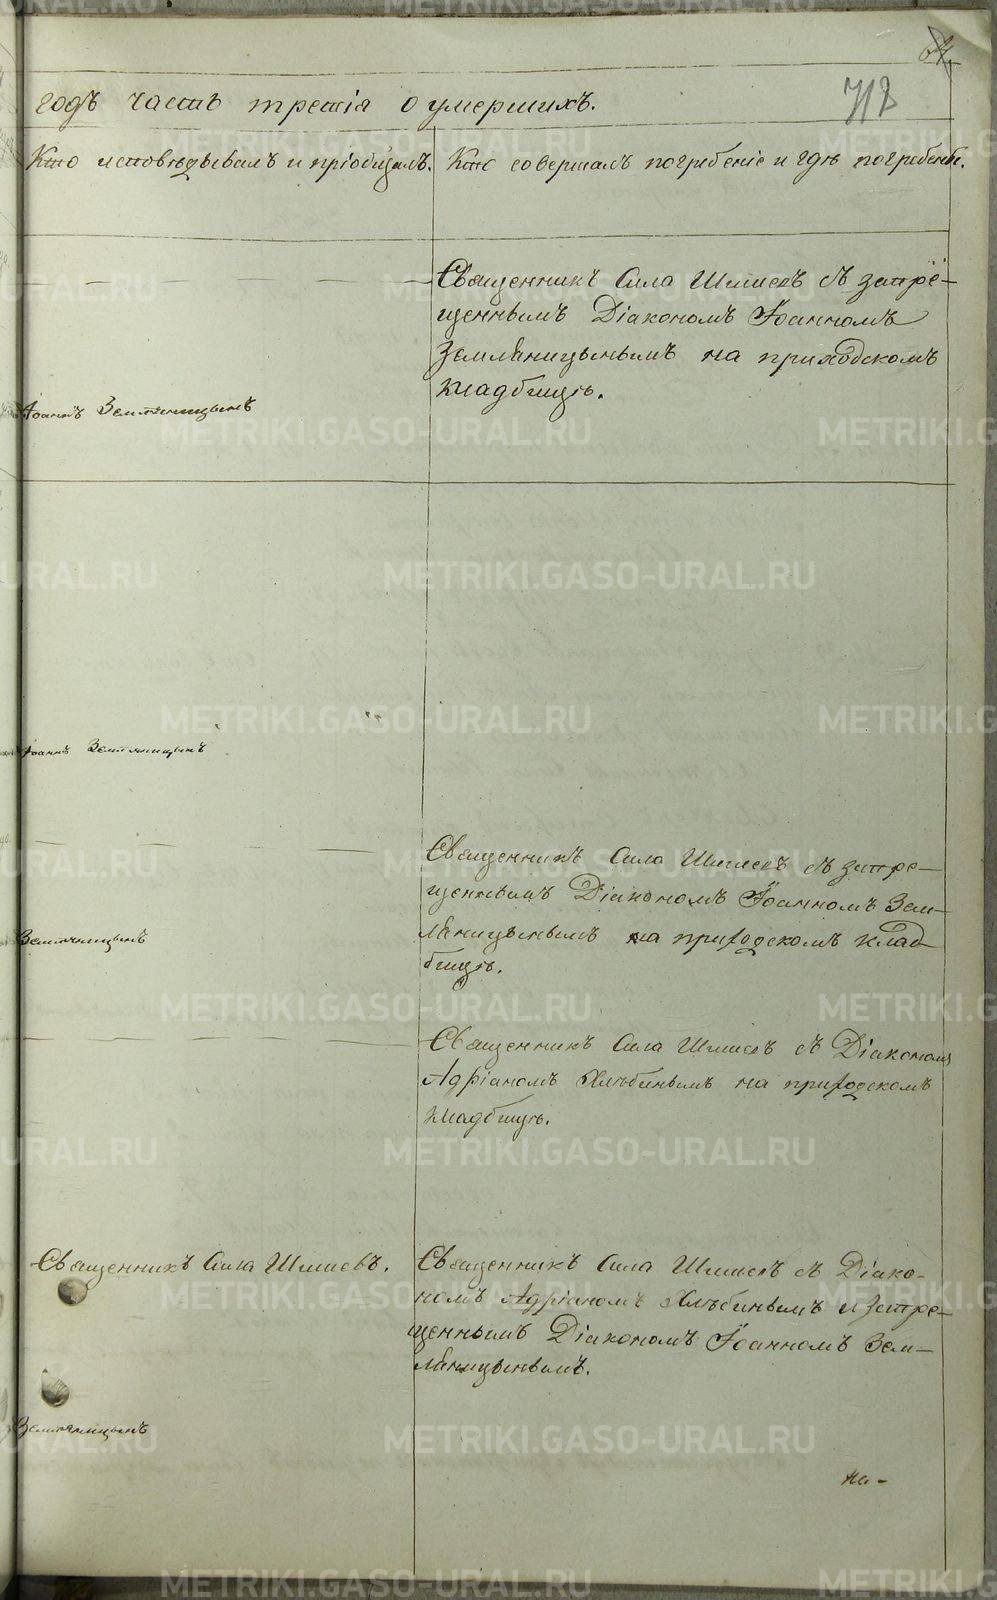 64
712
годъ часть третія о умершихъ.
Кто исповѣдывалъ и пріобщалъ.
Кто совершалъ погребеніе и гдѣ погребены.
Священникъ Сила Шмиевъ съ запре-
щеннымъ Діакономъ Іоанномъ
Земляницынымъ на приходскомъ
кладбищѣ.
Іоаннъ Земляницынъ
Іоаннъ Земляницынъ
Священникъ Сила Шмиевъ съ запре-
щеннымъ Діакономъ Іоанномъ Зем-
ляницынымъ на приходскомъ клад
бищѣ.
Земляницынъ
Священникъ Сила Шмиевъ съ Діакономъ
Адріаномъ Хлѣбинымъ на приходскомъ
кладбищѣ.
Священникъ Сила Шмиевъ.
Священникъ Сила Шмиевъ съ Діако-
номъ Адріаномъ Хлѣбинымъ и запре-
щеннымъ Діакономъ Іоанномъ Зем-
ляницынымъ.
Земляницынъ
на-
METRIKI.GASO-URAL.RU